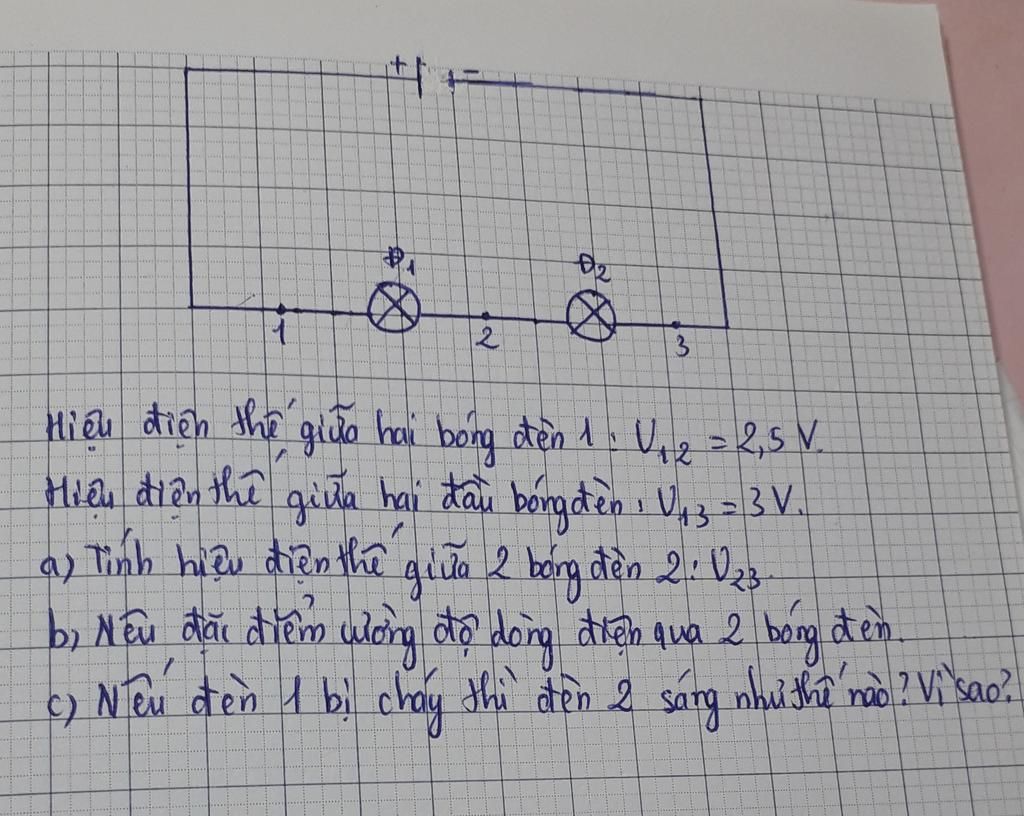 + -
Đ1 Đ2
1 2 3
Hiệu điện thế giữa hai bóng đèn 1: U12 = 2,5 V.
Hiệu điện thế giữa hai đầu bóng đèn: U13 = 3 V.
a) Tính hiệu điện thế giữa 2 bóng đèn 2: U23.
b) Nêu đặc điểm cường độ dòng điện qua 2 bóng đèn.
c) Nếu đèn 1 bị cháy thì đèn 2 sáng như thế nào? Vì sao?